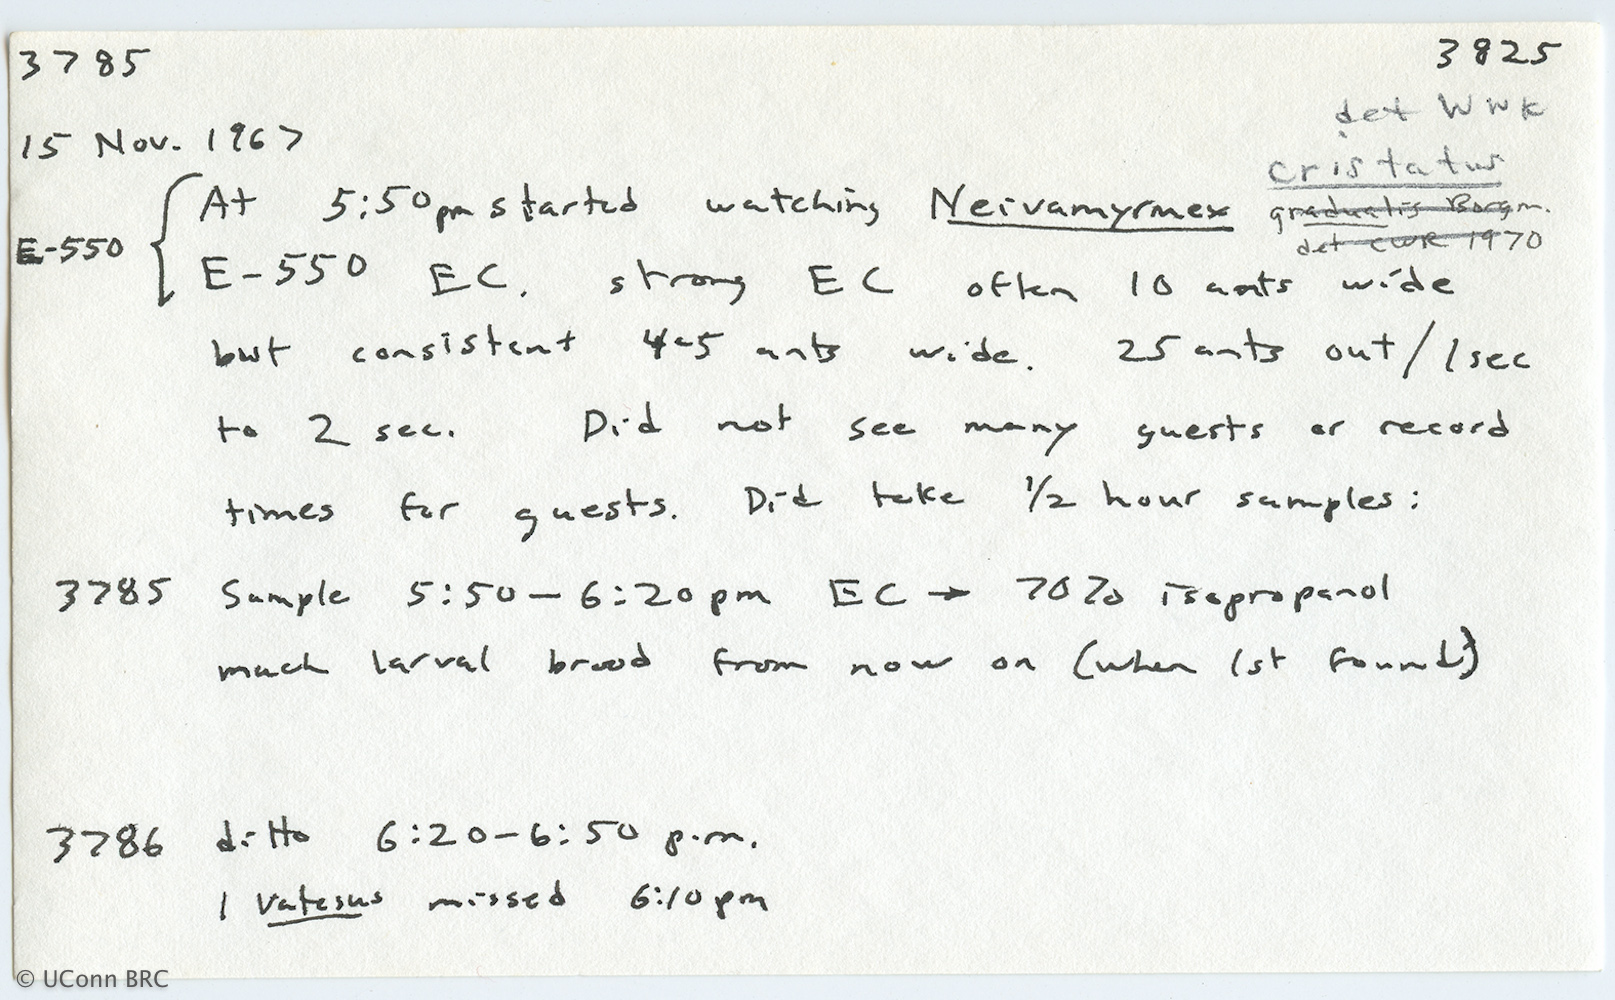 3785 3825
det WWK
15 Nov. 1967
cristatus
At 5:50pm started watching Neivamyrmex gradualis Borgm.
det CWR 1970
E-550 E-550 EC. strong EC often 10 ants wide
but consistent 4-5 ants wide. 25 ants out/1sec
to 2 sec. Did not see many guests or record
times for guests. Did take 1/2 hour samples:
3785 Sample 5:50-6:20pm EC → 70% isopropanol
much larval brood from now on (when 1st found)
3786 ditto 6:20-6:50 p.m.
1 Vatesus missed 6:10pm
© UConn BRC